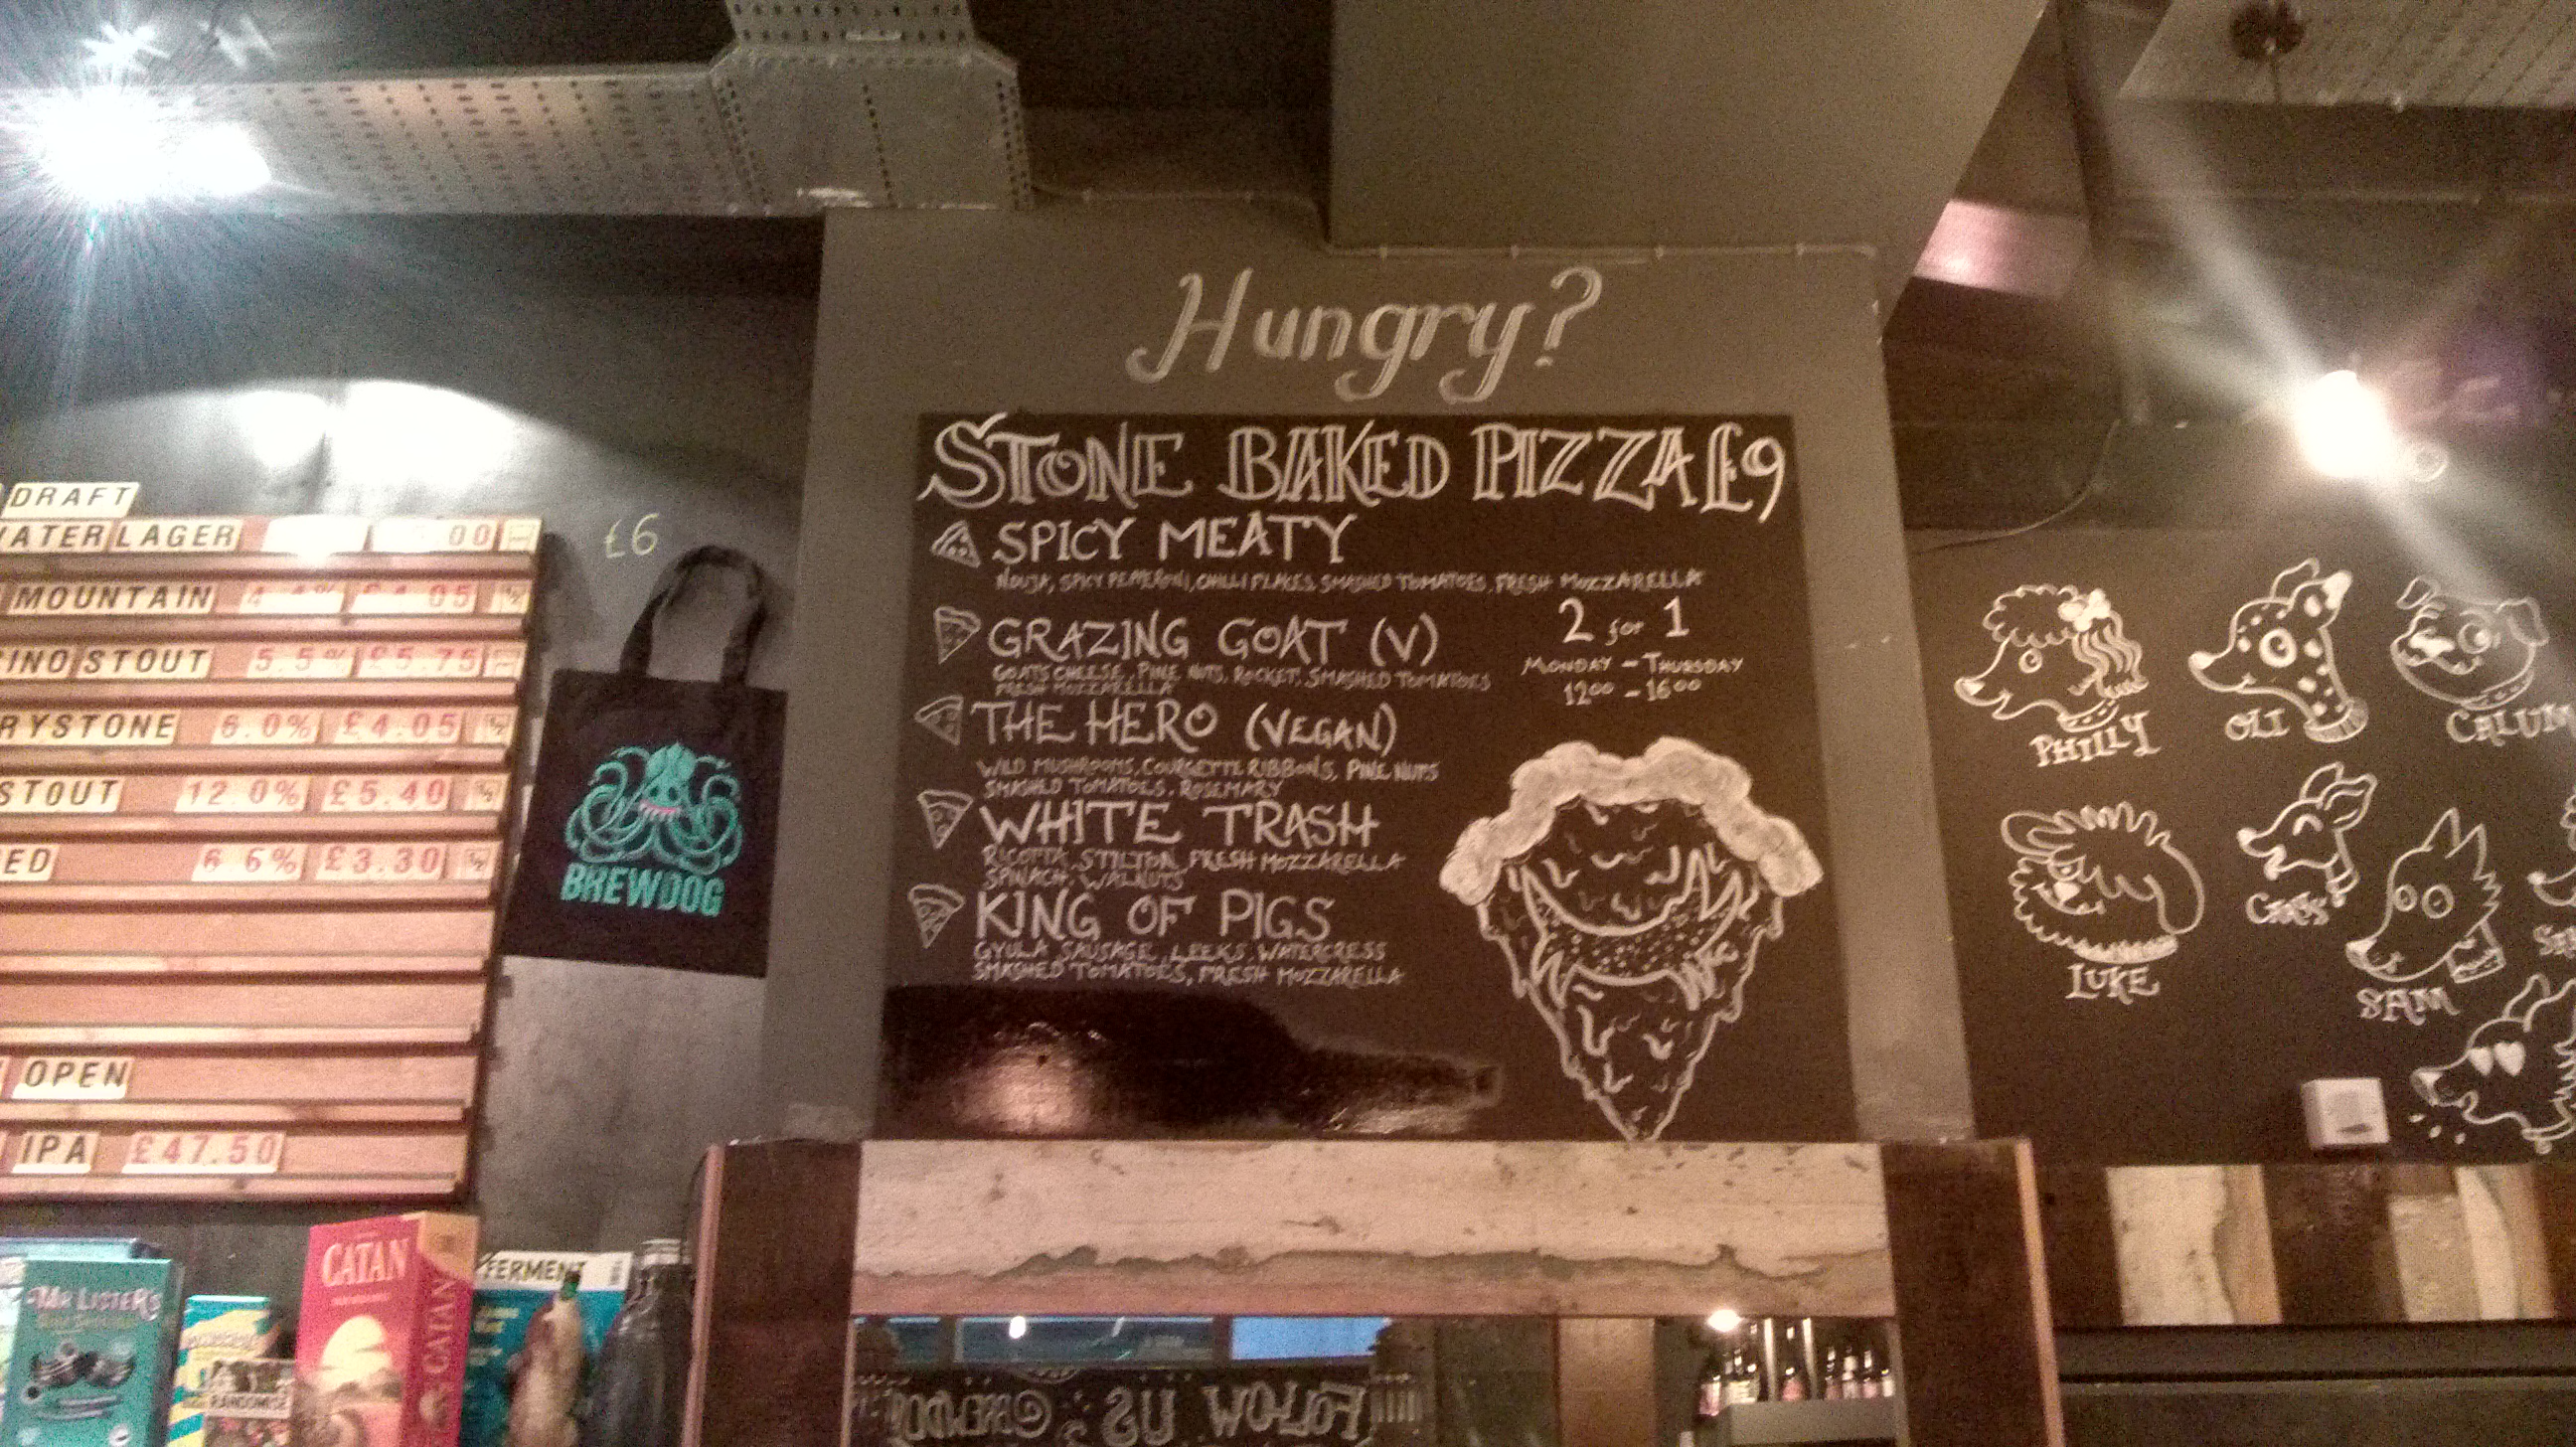 DRAFT
LAGER 00
MOUNTAIN 4.4% £4.05 ½
STOUT 5.5% £5.75
6.0% £4.05 ½
STOUT 12.0% £5.40 ½
6.6% £3.30 ½
OPEN
IPA £47.50
£6
BREWDOG
Hungry?
STONE BAKED PIZZA £9
SPICY MEATY
SPICY PEPERONI, CHILLI FLAKES, SMASHED TOMATOES, FRESH MOZZARELLA
GRAZING GOAT (V)
GOATS CHEESE, PINE NUTS, ROCKET, SMASHED TOMATOES
FRESH MOZZARELLA
2 for 1
MONDAY - THURSDAY
12⁰⁰ - 16⁰⁰
THE HERO (VEGAN)
WILD MUSHROOMS, COURGETTE RIBBONS, PINE NUTS
SMASHED TOMATOES, ROSEMARY
WHITE TRASH
RICOTTA, STILTON, FRESH MOZZARELLA
SPINACH, WALNUTS
KING OF PIGS
GYULA SAUSAGE, LEEKS, WATERCRESS
SMASHED TOMATOES, FRESH MOZZARELLA
PHILLY
OLI
CALUM
LUKE
SAM
MR LISTER'S
RANDOMISE
CATAN
CATAN
FERMENT
FOLLOW US